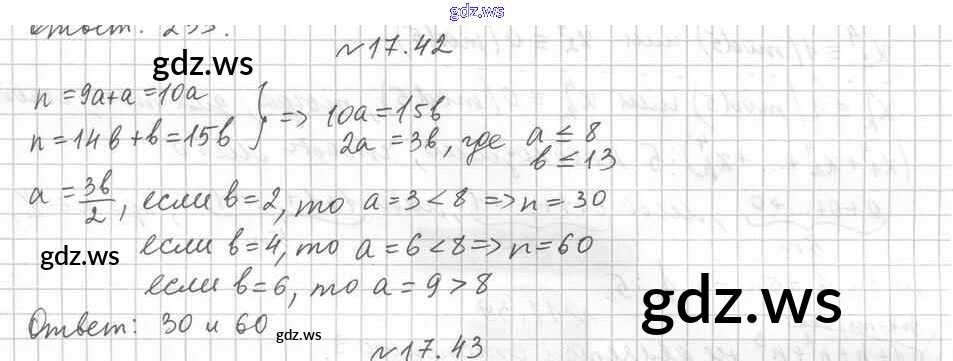 gdz.ws
Ответ: 233.
№17.42
gdz.ws
n = 9a+a = 10a
n = 14b+b = 15b } => 10a = 15b
2a = 3b, где a ≤ 8
b ≤ 13
a = 3b/2, если b=2, то a = 3 < 8 => n = 30
если b=4, то a = 6 < 8 => n = 60
gdz.ws
если b=6, то a = 9 > 8
gdz.ws
Ответ: 30 и 60
gdz.ws
№17.43